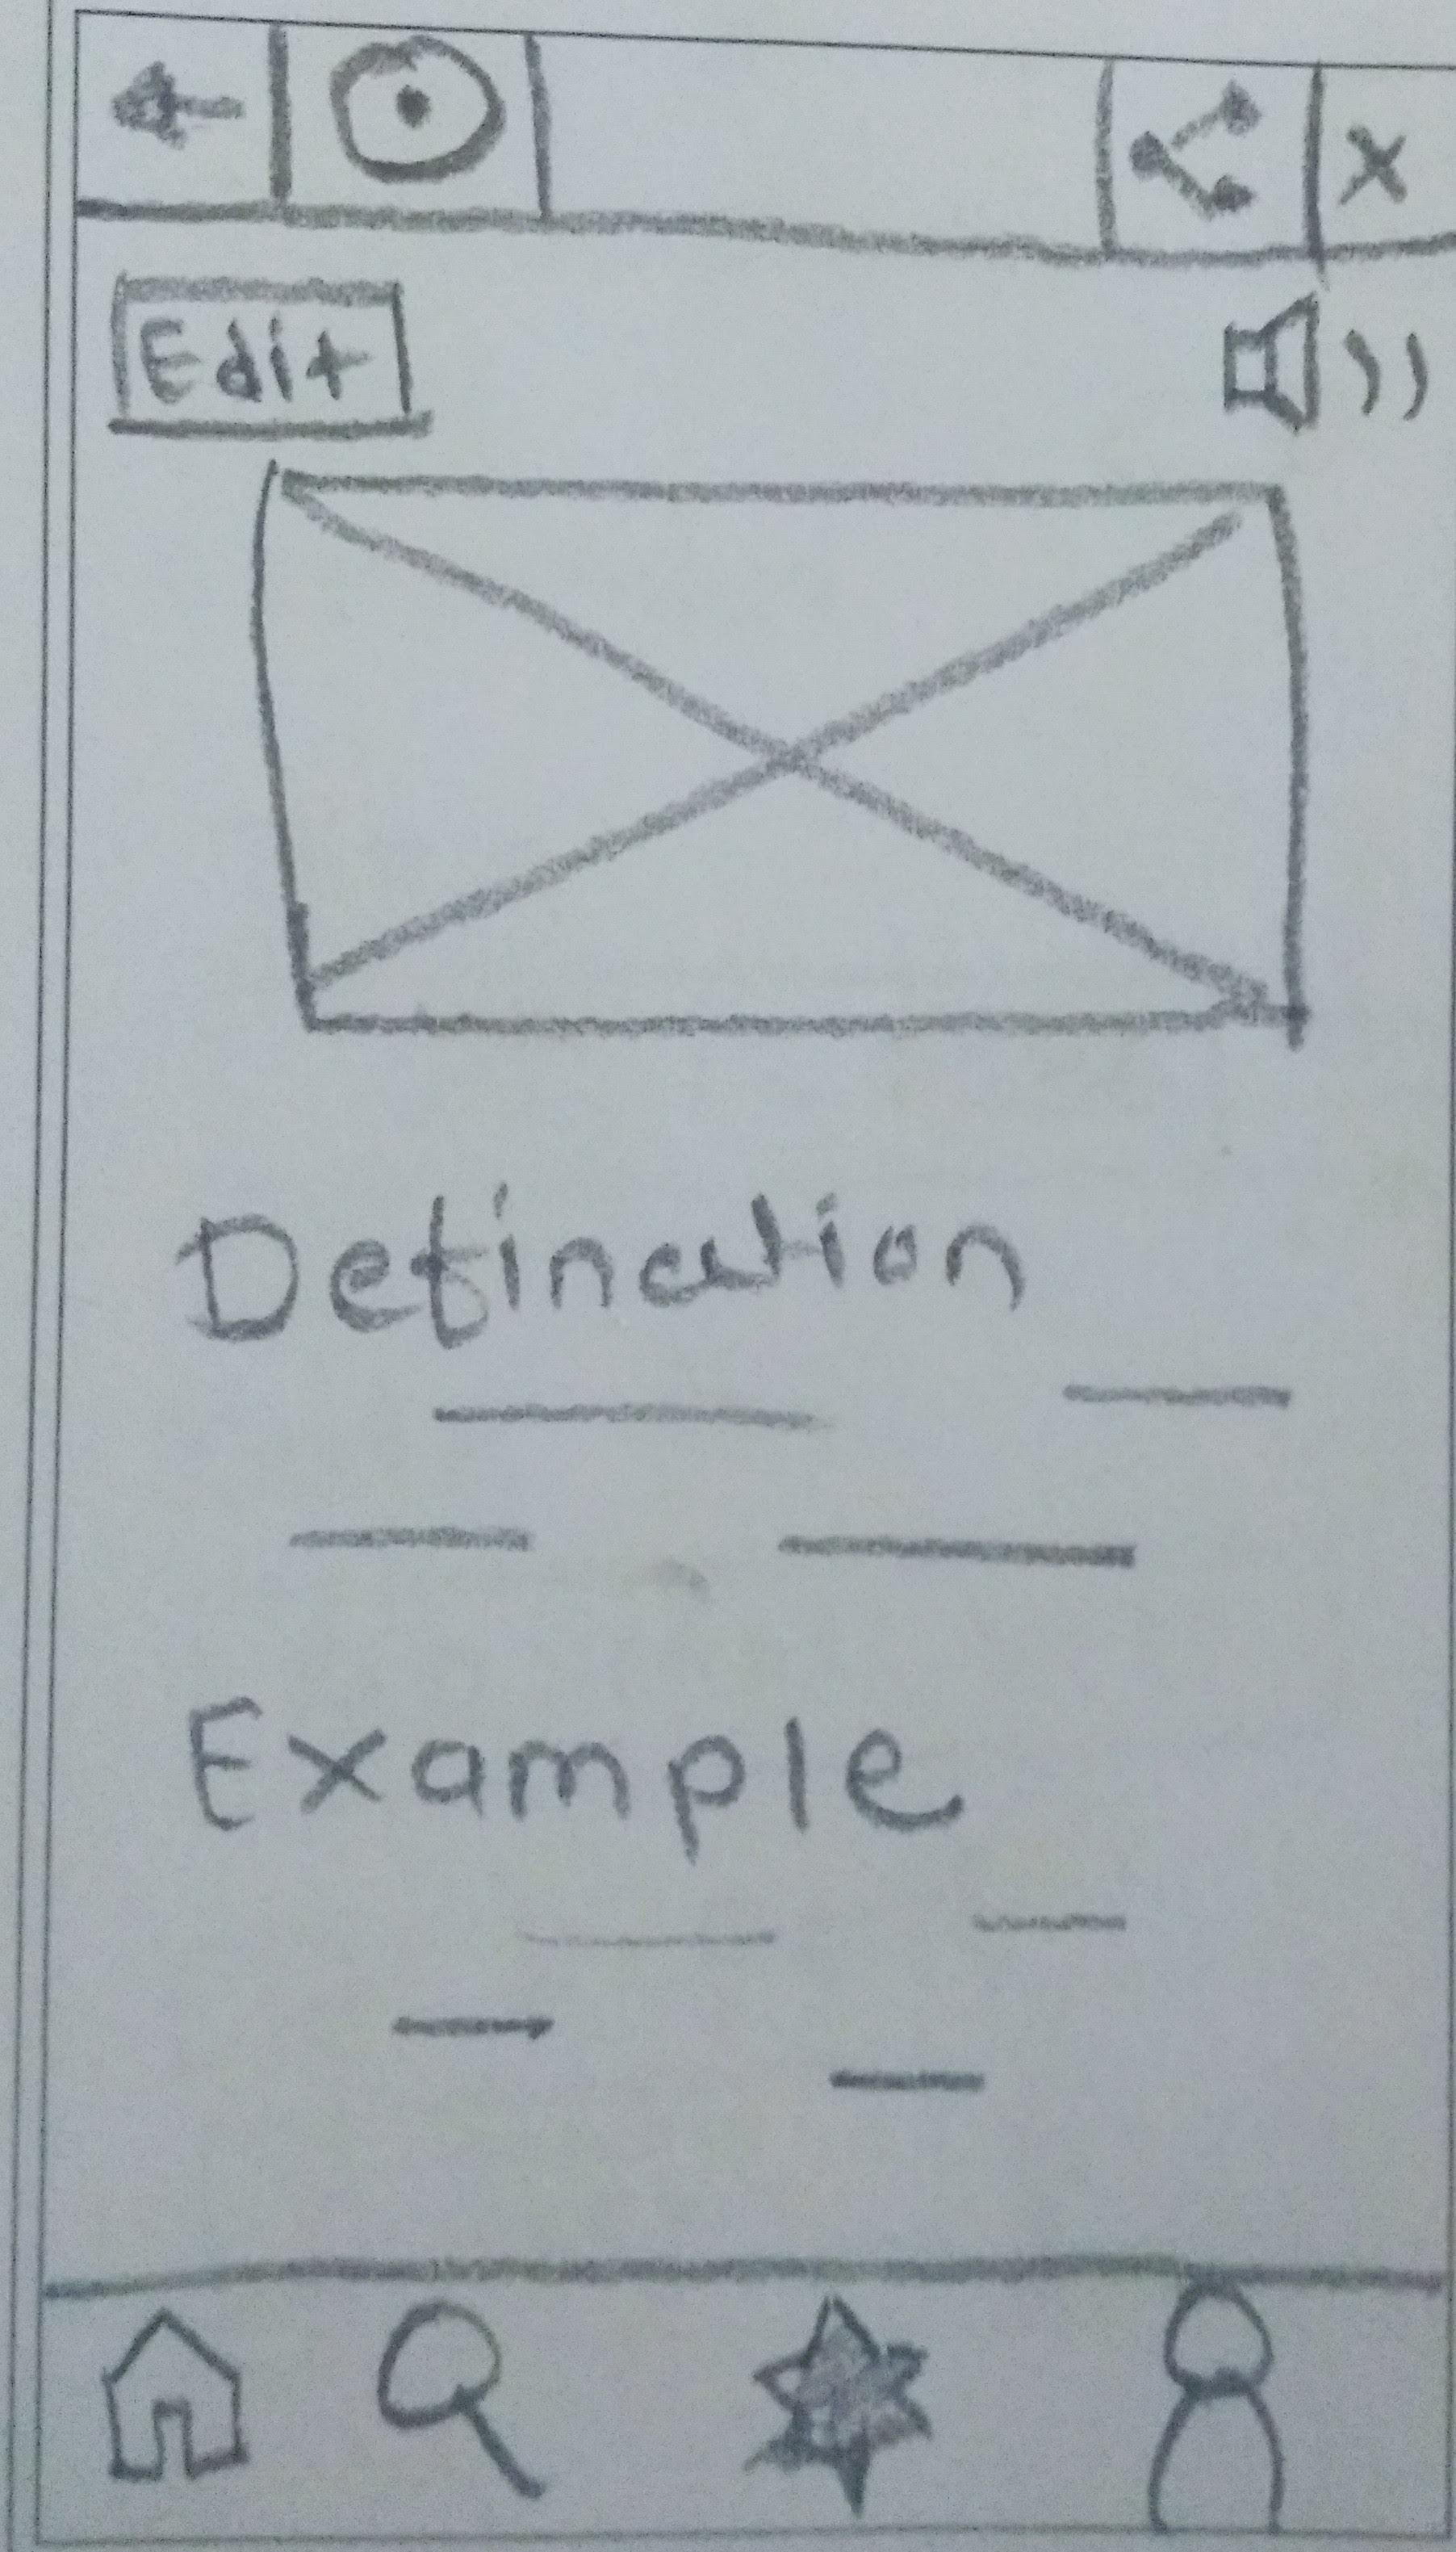 Edit
Defination
Example